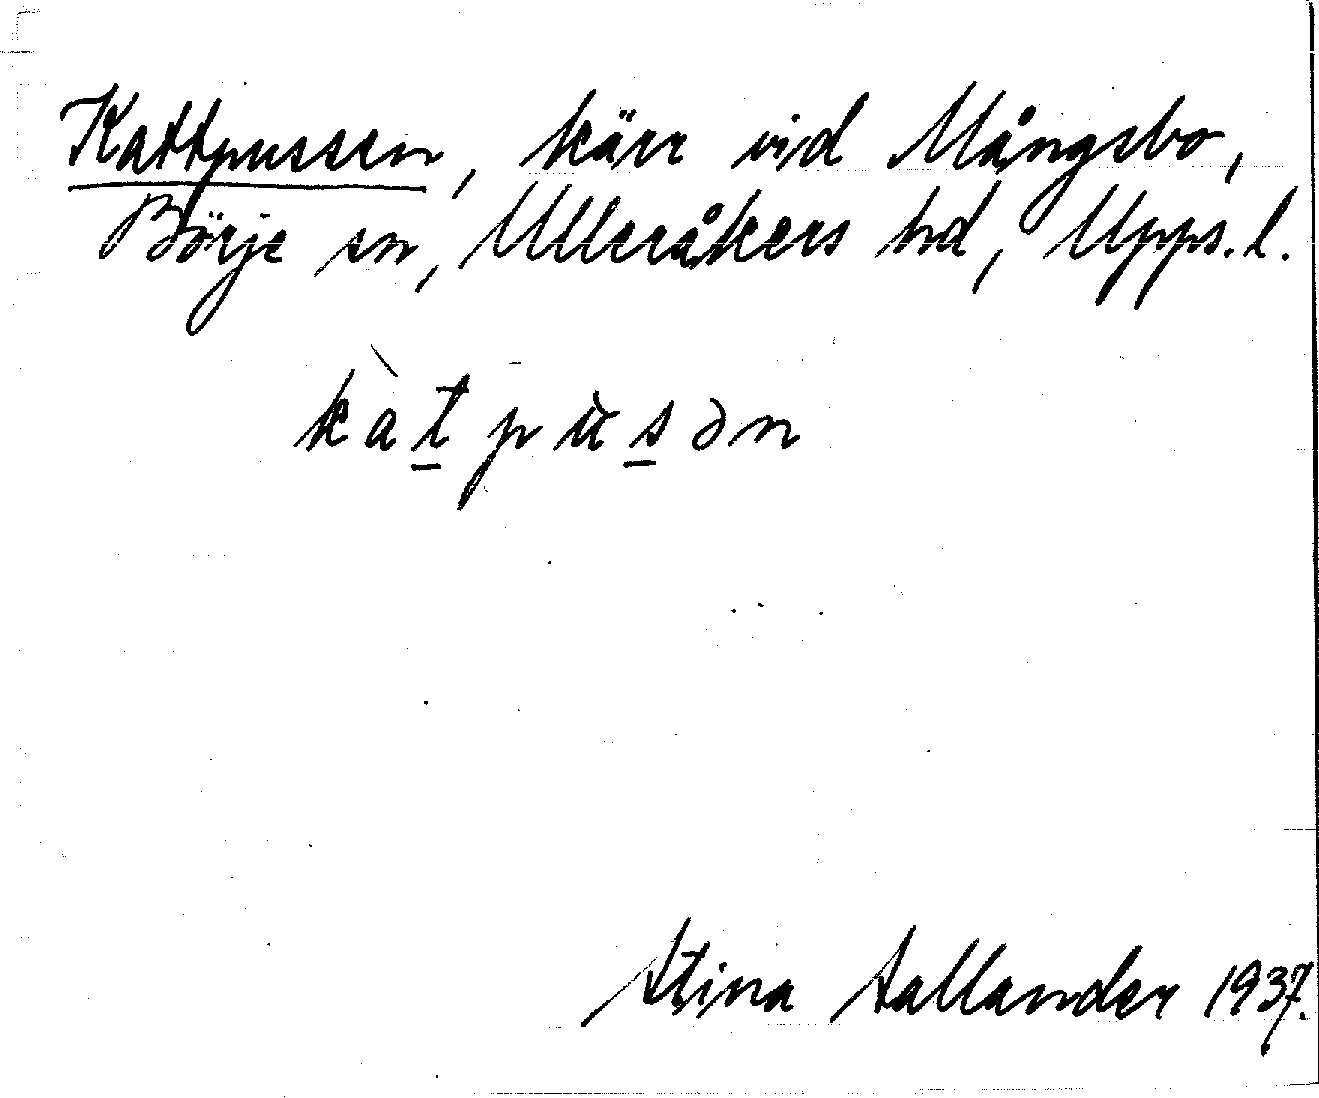 Kattpussen, kärr vid Mångsbo,
Börje sn, Ulleråkers hd, Upps. l.
kàt̲pùs̲ən
Stina Sallander 1937.